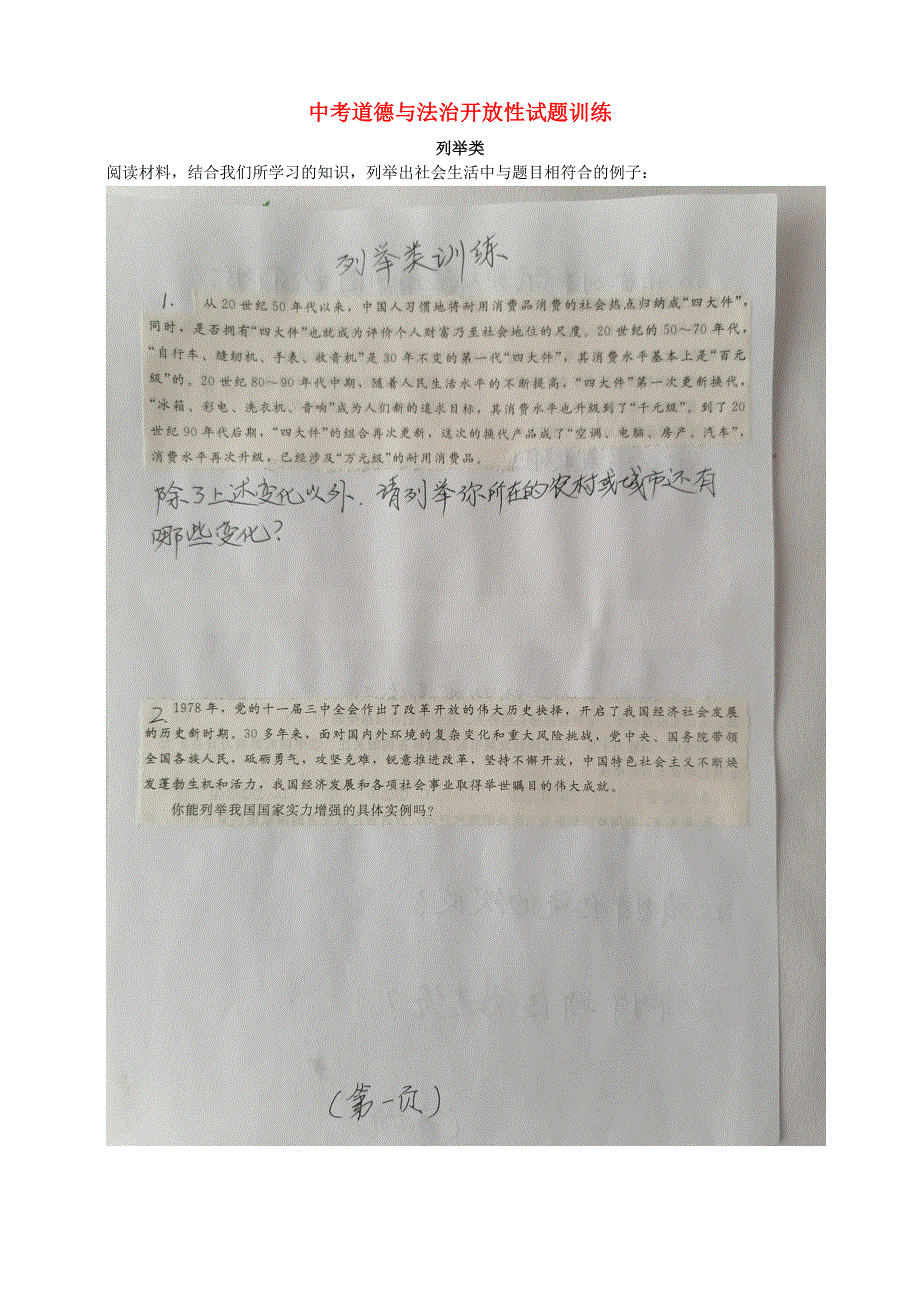 中考道德与法治开放性试题训练
列举类
阅读材料，结合我们所学习的知识，列举出社会生活中与题目相符合的例子：
列举类训练
1. 从20世纪50年代以来，中国人习惯地将耐用消费品消费的社会热点归纳成“四大件”，
同时，是否拥有“四大件”也就成为评价个人财富乃至社会地位的尺度。20世纪的50～70年代，
“自行车、缝纫机、手表、收音机”是30年不变的第一代“四大件”，其消费水平基本上是“百元
级”的。20世纪80～90年代中期，随着人民生活水平的不断提高，“四大件”第一次更新换代，
“冰箱、彩电、洗衣机、音响”成为人们新的追求目标，其消费水平也升级到了“千元级”。到了20
世纪90年代后期，“四大件”的组合再次更新，这次的换代产品成了“空调、电脑、房产、汽车”，
消费水平再次升级，已经涉及“万元级”的耐用消费品。
除了上述变化以外，请列举你所在的农村或城市还有
哪些变化？
2 1978年，党的十一届三中全会作出了改革开放的伟大历史抉择，开启了我国经济社会发展
的历史新时期。30多年来，面对国内外环境的复杂变化和重大风险挑战，党中央、国务院带领
全国各族人民，砥砺勇气，攻坚克难，锐意推进改革，坚持不懈开放，中国特色社会主义不断焕
发蓬勃生机和活力，我国经济发展和各项社会事业取得举世瞩目的伟大成就。
你能列举我国国家实力增强的具体实例吗？
（第一页）